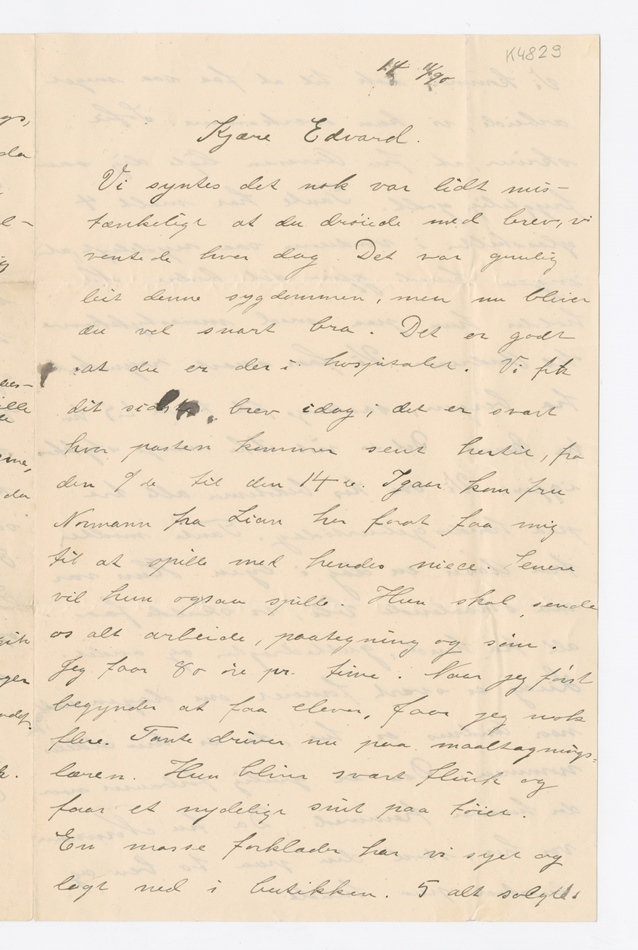 K4829
14 11/90
Kjære Edvard.
Vi syntes det nok var lidt mis-
tænkeligt at du drøiede med brev, vi
ventede hver dag. Det var gruelig
leit denne sygdommen, men nu bliver
du vel snart bra. Det er godt
at du er der i hospitalet. Vi fik
dit sidste brev idag; det er svært
hvor posten kommer sent hertil, fra
den 9de til den 14de. Igaar kom fru
Normann fra Lian her forat faa mig
til at spille med hendes niece. Senere
vil hun ogsaa spille. Hun skal sende
os alt arbeide, paategning og søm.
Jeg faar 80 øre pr. time. Naar jeg først
begynder at faa elever, faar jeg nok
flere. Tante driver nu paa maaltagnings-
læren. Hun bliver svært flink og
faar et nydeligt snit paa tøiet.
En masse forklæder har vi syet og
lagt ned i butikken. 5 alt solgt.
gs,
da
ille
da
gik
ger